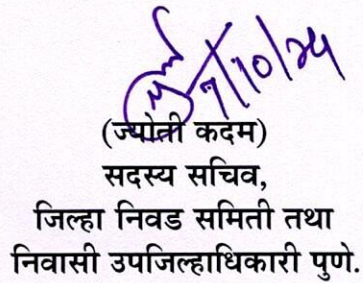 ७/10/२५
(ज्योती कदम)
सदस्य सचिव,
जिल्हा निवड समिती तथा
निवासी उपजिल्हाधिकारी पुणे.